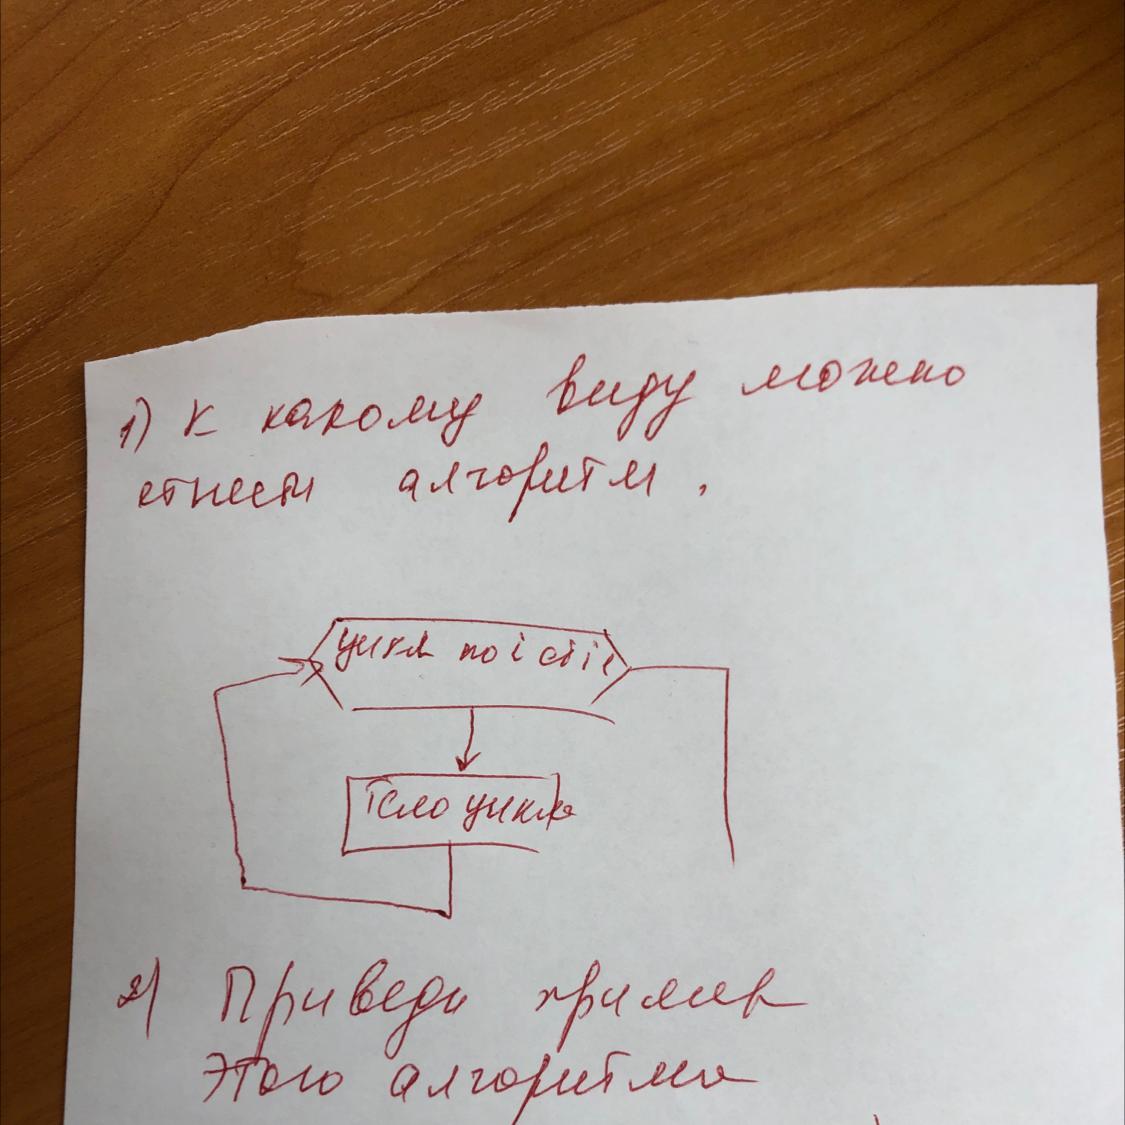 1) К какому виду можно
отнести алгоритм.
цикл по i от i1
Тело цикла
2) Приведи пример
этого алгоритма